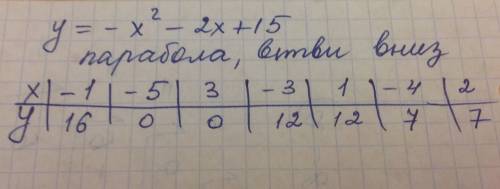 y = - x² - 2x + 15
парабола, ветви вниз
x | -1 | -5 | 3 | -3 | 1 | -4 | 2
y | 16 | 0 | 0 | 12 | 12 | 7 | 7